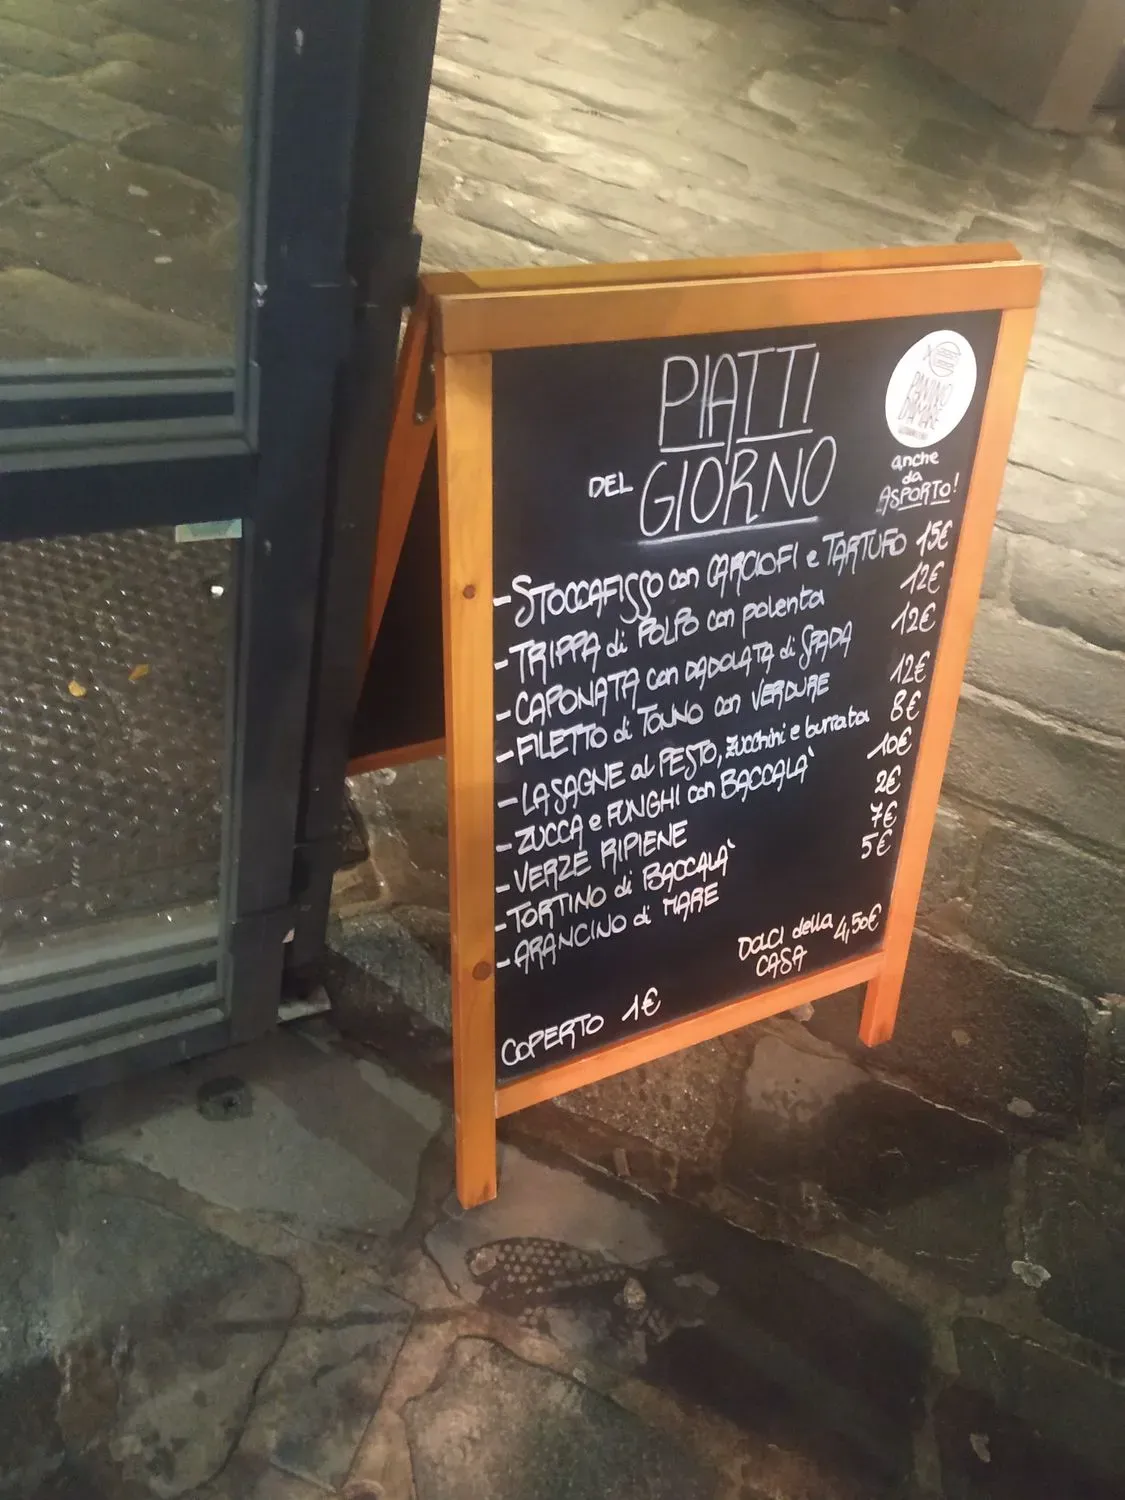 PIATTI
DEL GIORNO
PANINO
DAMARE
anche
da
ASPORTO!
- STOCCAFISSO con CARCIOFI e TARTUFO 15€
- TRIPPA di POLPO con polenta 12€
- CAPONATA con DADOLATA di SPADA 12€
- FILETTO di TONNO con VERDURE 12€
- LASAGNE al PESTO, zucchini e burrata 8€
- ZUCCA e FUNGHI con BACCALA' 10€
- VERZE RIPIENE 2€
- TORTINO di BACCALA' 7€
- ARANCINO di MARE 5€
DOLCI della 4,50€
CASA
COPERTO 1€